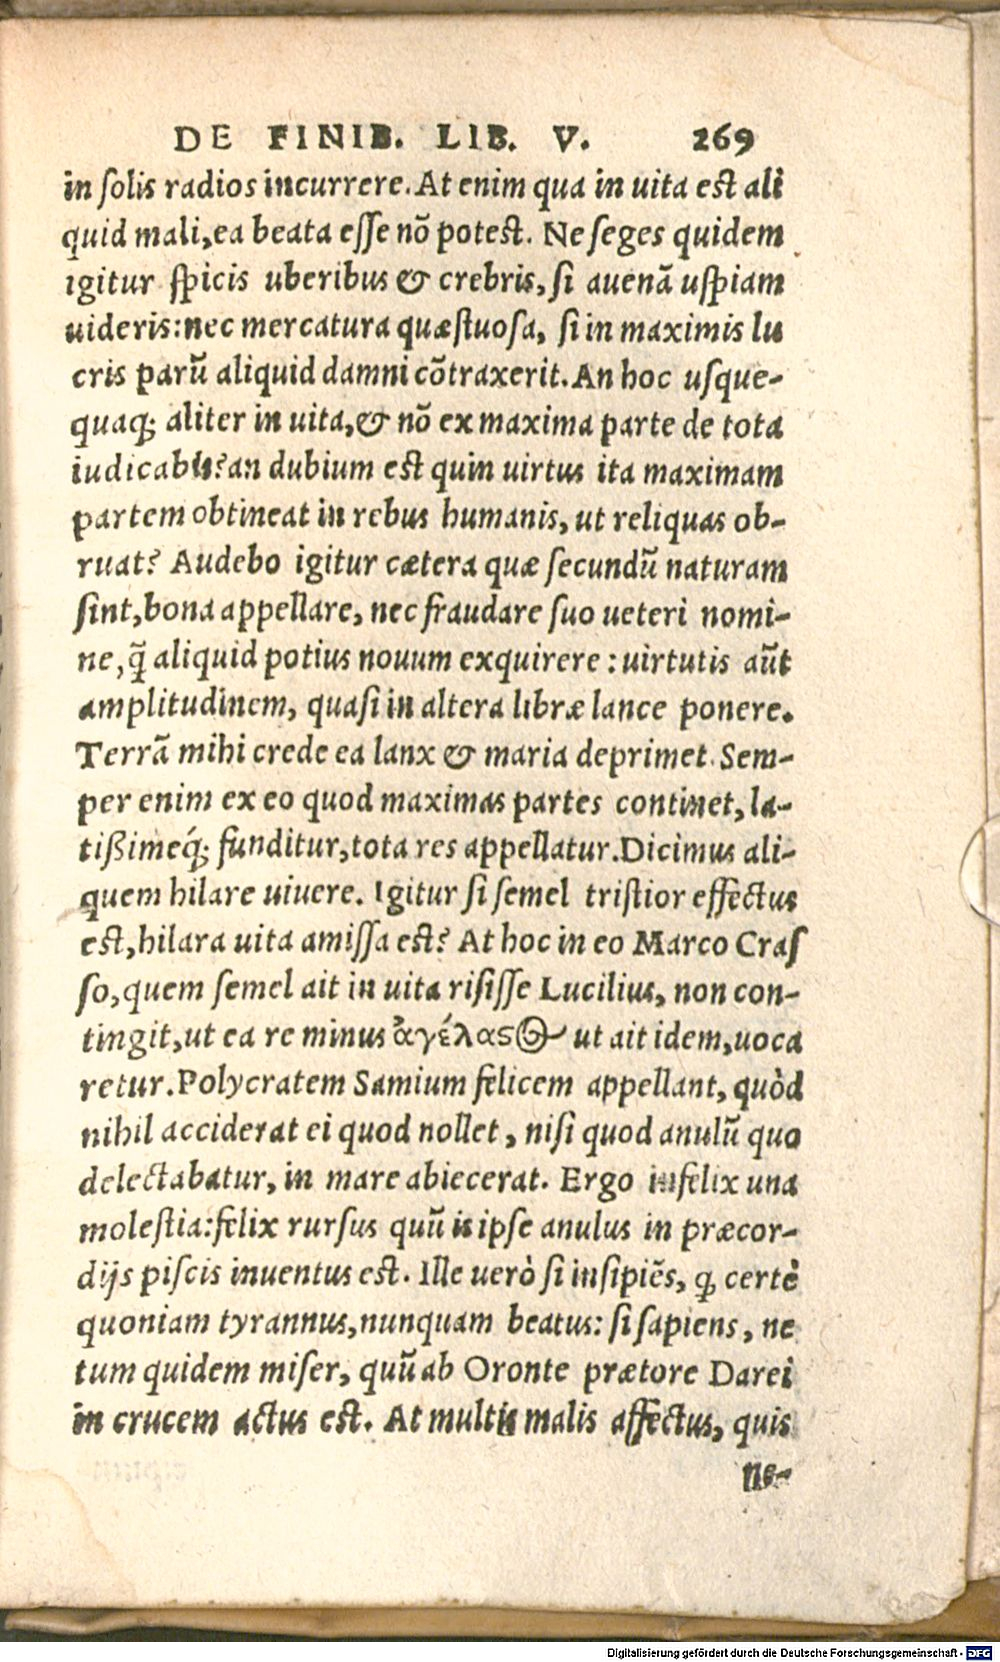 DE FINIB. LIB. V. 269
in ſolis radios incurrere. At enim qua in uita est ali
quid mali, ea beata eſſe nō potest. Ne ſeges quidem
igitur ſpicis uberibus & crebris, ſi auenā uſpiam
uideris: nec mercatura quæſtuoſa, ſi in maximis lu
cris parū aliquid damni cōtraxerit. An hoc uſque-
quaq; aliter in uita, & nō ex maxima parte de tota
iudicabis? an dubium est quin uirtus ita maximam
partem obtineat in rebus humanis, ut reliquas ob-
ruat? Audebo igitur cætera quæ ſecundū naturam
ſint, bona appellare, nec fraudare ſuo ueteri nomi-
ne, q̄ aliquid potius nouum exquirere: uirtutis aūt
amplitudinem, quaſi in altera libræ lance ponere.
Terrā mihi crede ea lanx & maria deprimet. Sem-
per enim ex eo quod maximas partes continet, la-
tißimeq́; funditur, tota res appellatur. Dicimus ali-
quem hilare uiuere. Igitur ſi ſemel triſtior effectus
est, hilara uita amiſſa est? At hoc in eo Marco Craſ
ſo, quem ſemel ait in uita riſiſſe Lucilius, non con-
tingit, ut ea re minus ἀγέλαςος ut ait idem, uoca
retur. Polycratem Samium felicem appellant, quòd
nihil acciderat ei quod nollet, niſi quod anulū quo
delectabatur, in mare abiecerat. Ergo infelix una
moleſtia: felix rurſus quū is ipſe anulus in præcor-
dijs piſcis inuentus est. Ille uerò ſi inſipiēs, ꝙ certè
quoniam tyrannus, nunquam beatus: ſi ſapiens, ne
tum quidem miſer, quū ab Oronte prætore Darei
in crucem actus est. At multis malis affectus, quis
ne-
Digitalisierung gefördert durch die Deutsche Forschungsgemeinschaft - DFG